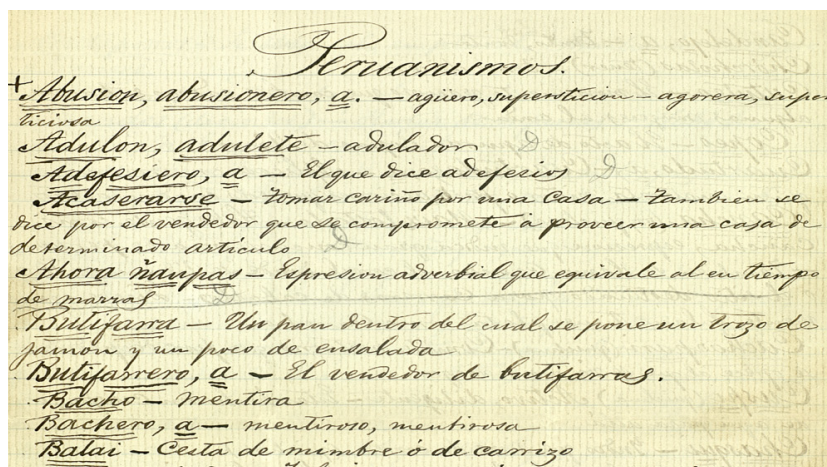 Peruanismos.
+ Abusion, abusionero, a. — agüero, supersticion — agorera, super
ticiosa
Adulon, adulete — adulador D
Adefesiero, a — El que dice adefesios D
Acaserarse — Tomar cariño por una casa — Tambien se
dice por el vendedor que se compromete á proveer una casa de
determinado artículo D
Ahora ñaupas — Espresion adverbial que equivale al en tiempo
de marras D
Butifarra — Un pan dentro del cual se pone un trozo de
jamon y un poco de ensalada
Butifarrero, a — El vendedor de butifarras.
Bacho — mentira
Bachero, a — mentiroso, mentirosa
Balai — Cesta de mimbre ó de carrizo